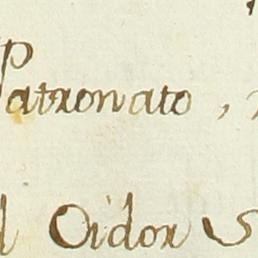 Patronato,
l Oidor S